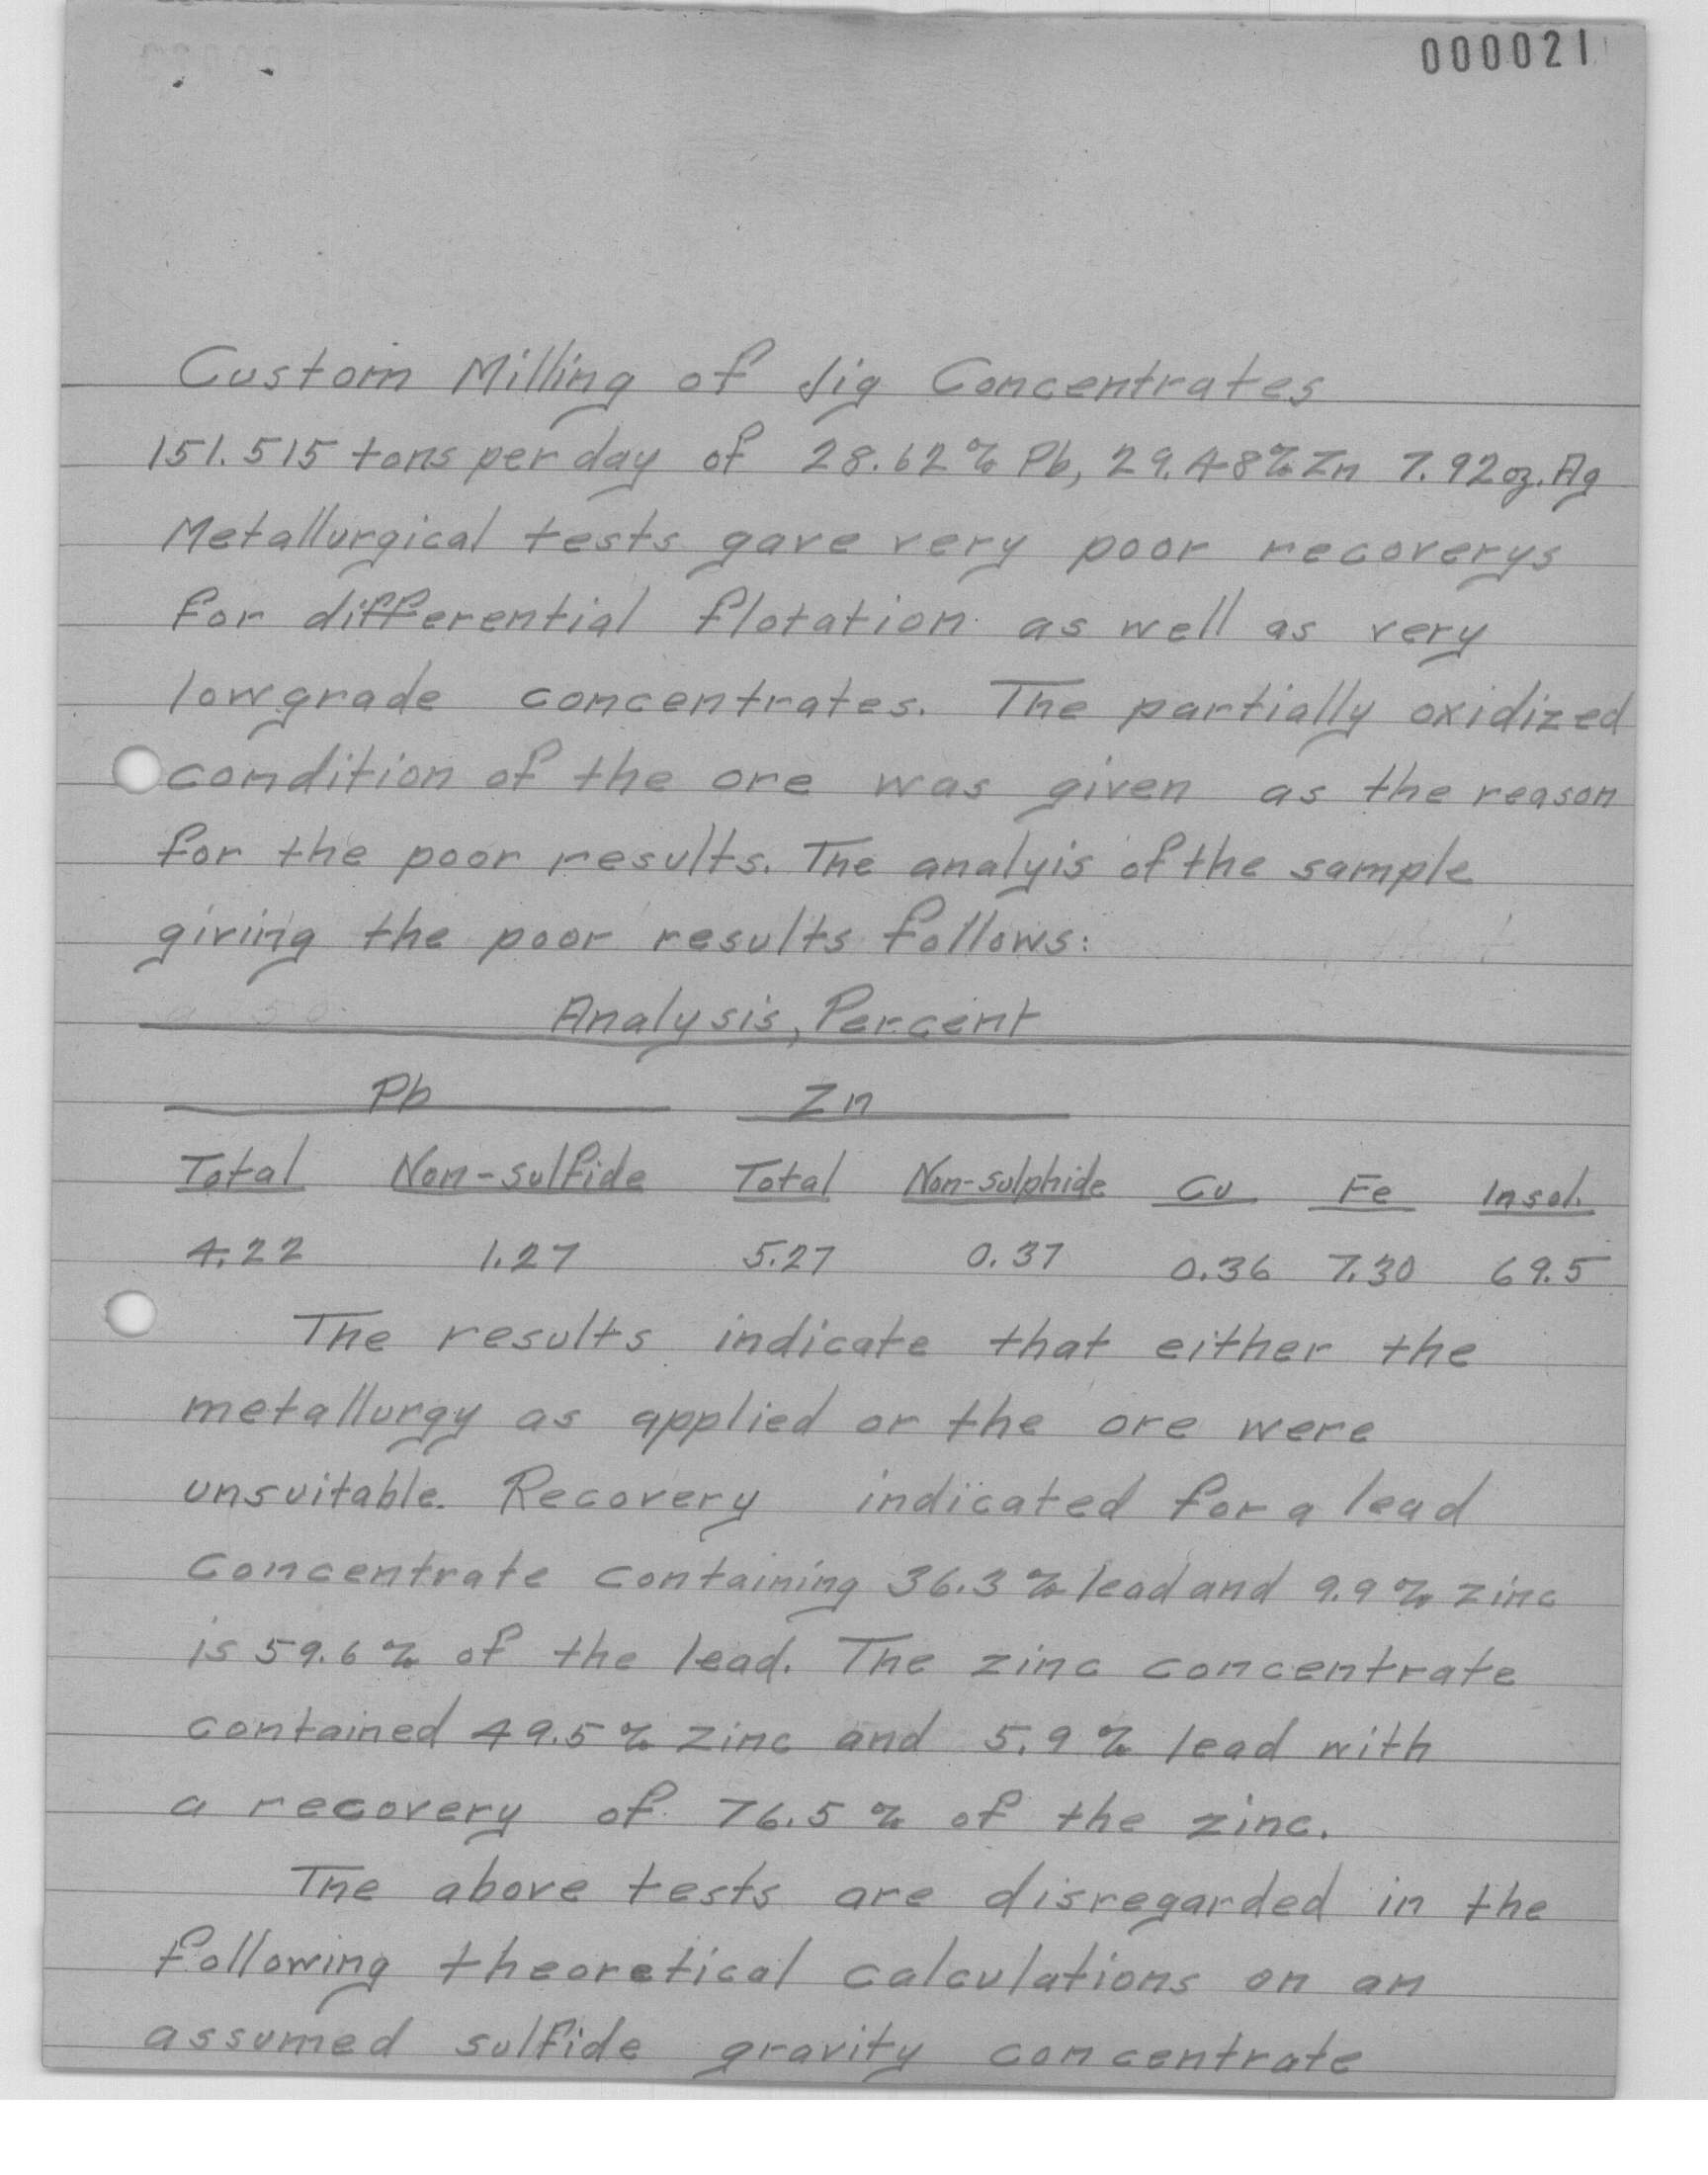 000021
Custom Milling of Jig Concentrates
151.515 tons per day of 28.62% Pb, 29.48% Zn 7.92 oz. Ag
Metallurgical tests gave very poor recoverys
for differential flotation as well as very
lowgrade concentrates. The partially oxidized
condition of the ore was given as the reason
for the poor results. The analyis of the sample
giving the poor results follows:
Analysis, Percent
Pb Zn
Total Non-sulfide Total Non-sulphide Cu Fe Insol.
4.22 1.27 5.27 0.37 0.36 7.30 69.5
The results indicate that either the
metallurgy as applied or the ore were
unsuitable. Recovery indicated for a lead
concentrate containing 36.3% lead and 9.9% zinc
is 59.6% of the lead. The zinc concentrate
contained 49.5% zinc and 5.9% lead with
a recovery of 76.5% of the zinc.
The above tests are disregarded in the
following theoretical calculations on an
assumed sulfide gravity concentrate